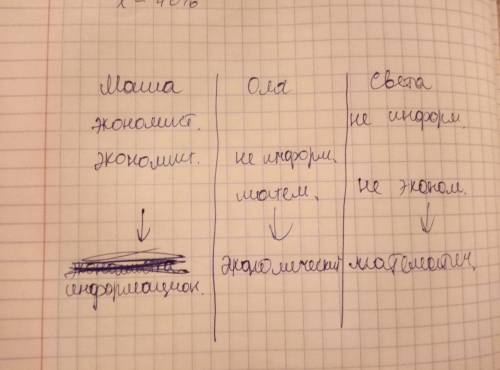 Маша Оля Света
экономист. не информ.
экономист. не информ.
матем. не эконом.
информацион. экономический математич.